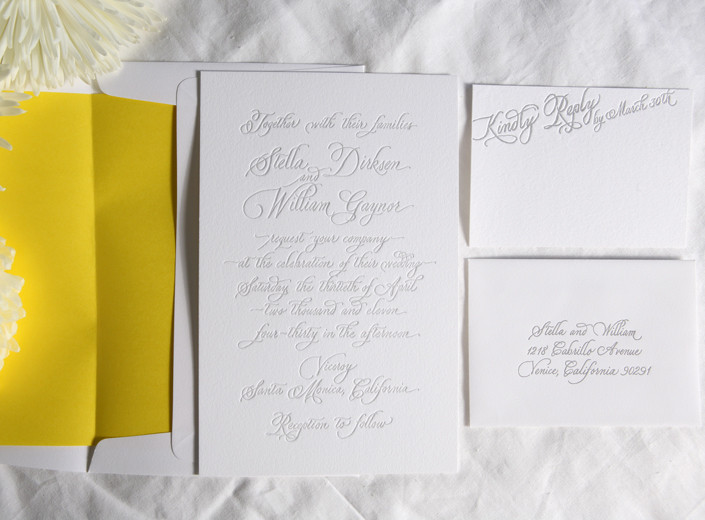 Together with their families
Stella Dirksen
and
William Gaynor
request your company
at the celebration of their wedding
Saturday, the thirtieth of April
two thousand and eleven
four-thirty in the afternoon
Viceroy
Santa Monica, California
Reception to follow
Kindly Reply by March 30th
Stella and William
1218 Cabrillo Avenue
Venice, California 90291